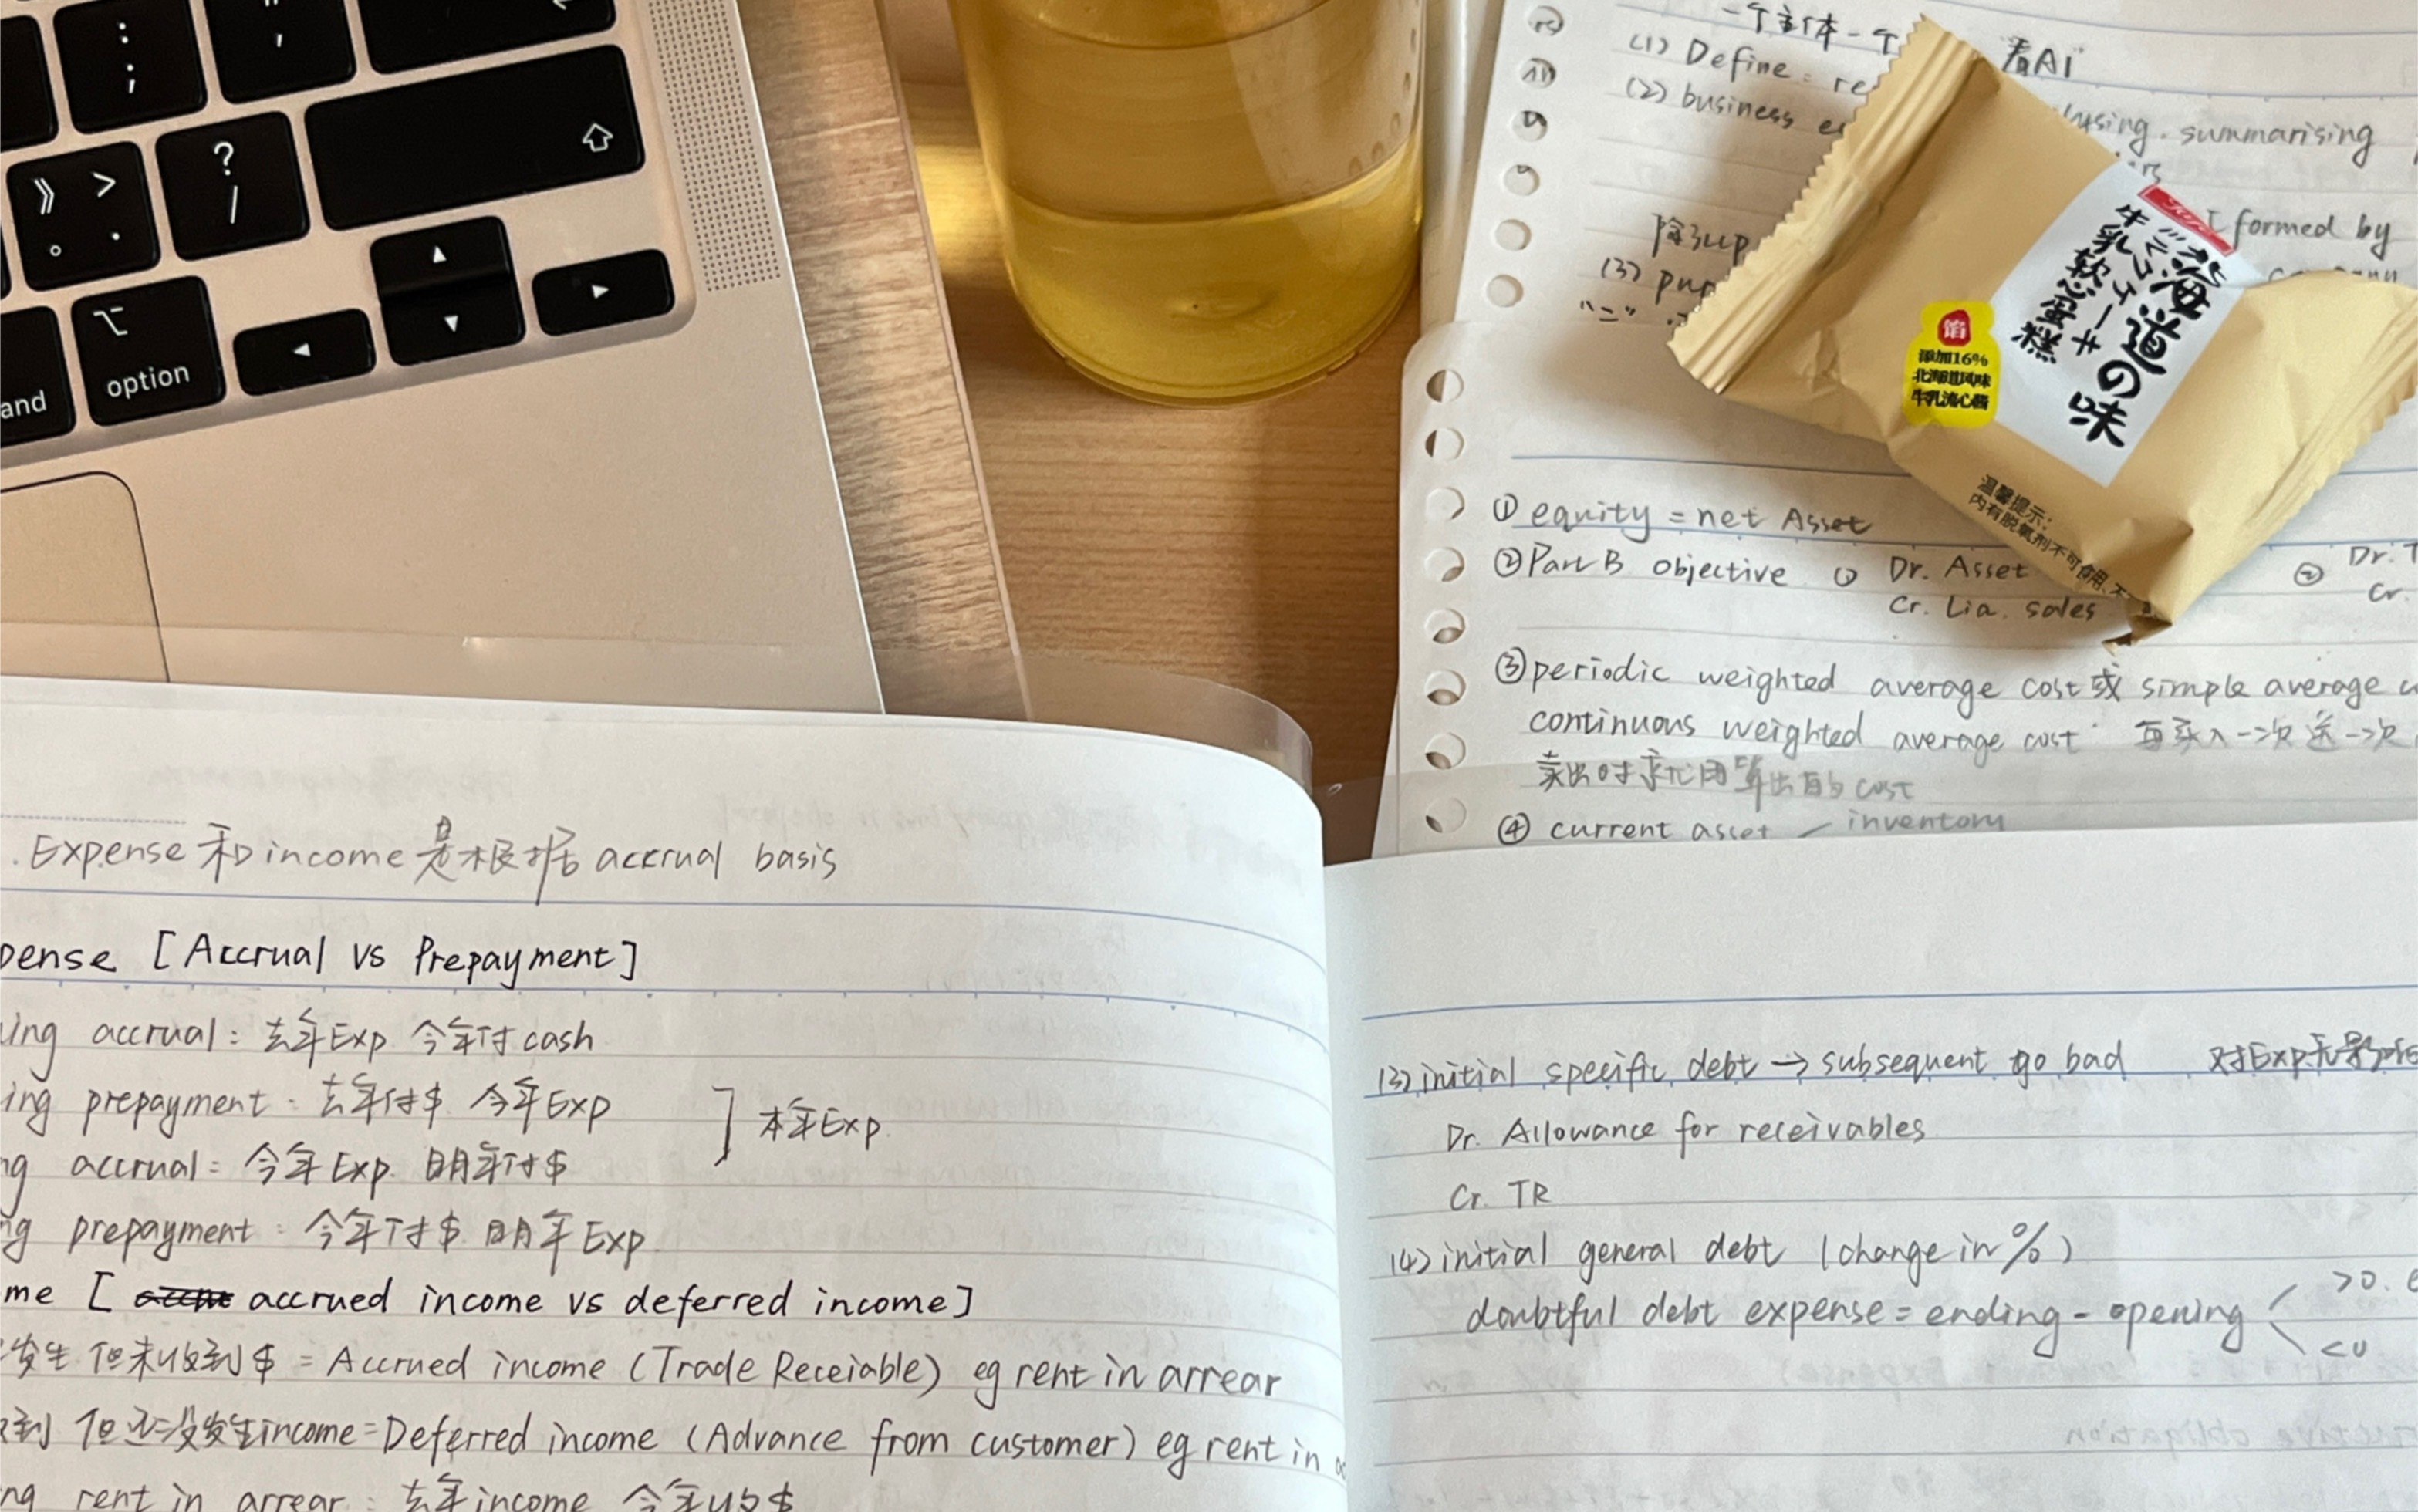 : ;
" '
》 >
。 .
? /
option
and
一个主体一个
(1) Define: re
看AI
(2) business e
summarising
formed by
除3LLP
(3) pur
海道の味
牛乳软心蛋糕
馅
添加16%
北海道风味
牛乳流心酱
温馨提示:
内有脱氧剂不可食用
① equity = net Asset
② Part B objective ① Dr. Asset ② Dr. T
Cr. Lia. sales Cr.
③ periodic weighted average cost 或 simple average c
continuous weighted average cost 每买入一次送一次
卖出时就用算出的 cost
④ current asset / inventory
. Expense 和 income 是根据 accrual basis
pense [Accrual vs Prepayment]
ing accrual: 去年Exp 今年付cash
ing prepayment: 去年付$ 今年Exp
] 本年Exp
ng accrual: 今年Exp. 明年付$
ng prepayment: 今年付$ 明年Exp
me [ accrued income vs deferred income]
发生 但未收到$ = Accrued income (Trade Receiable) eg rent in arrear
到 但还没发生income = Deferred income (Advance from customer) eg rent in
ng rent in arrear: 去年income 今年收$
(3) initial specific debt → subsequent go bad 对Exp无影响
Dr. Allowance for receivables
Cr. TR
(4) initial general debt (change in %)
doubtful debt expense = ending - opening
>0.
<0